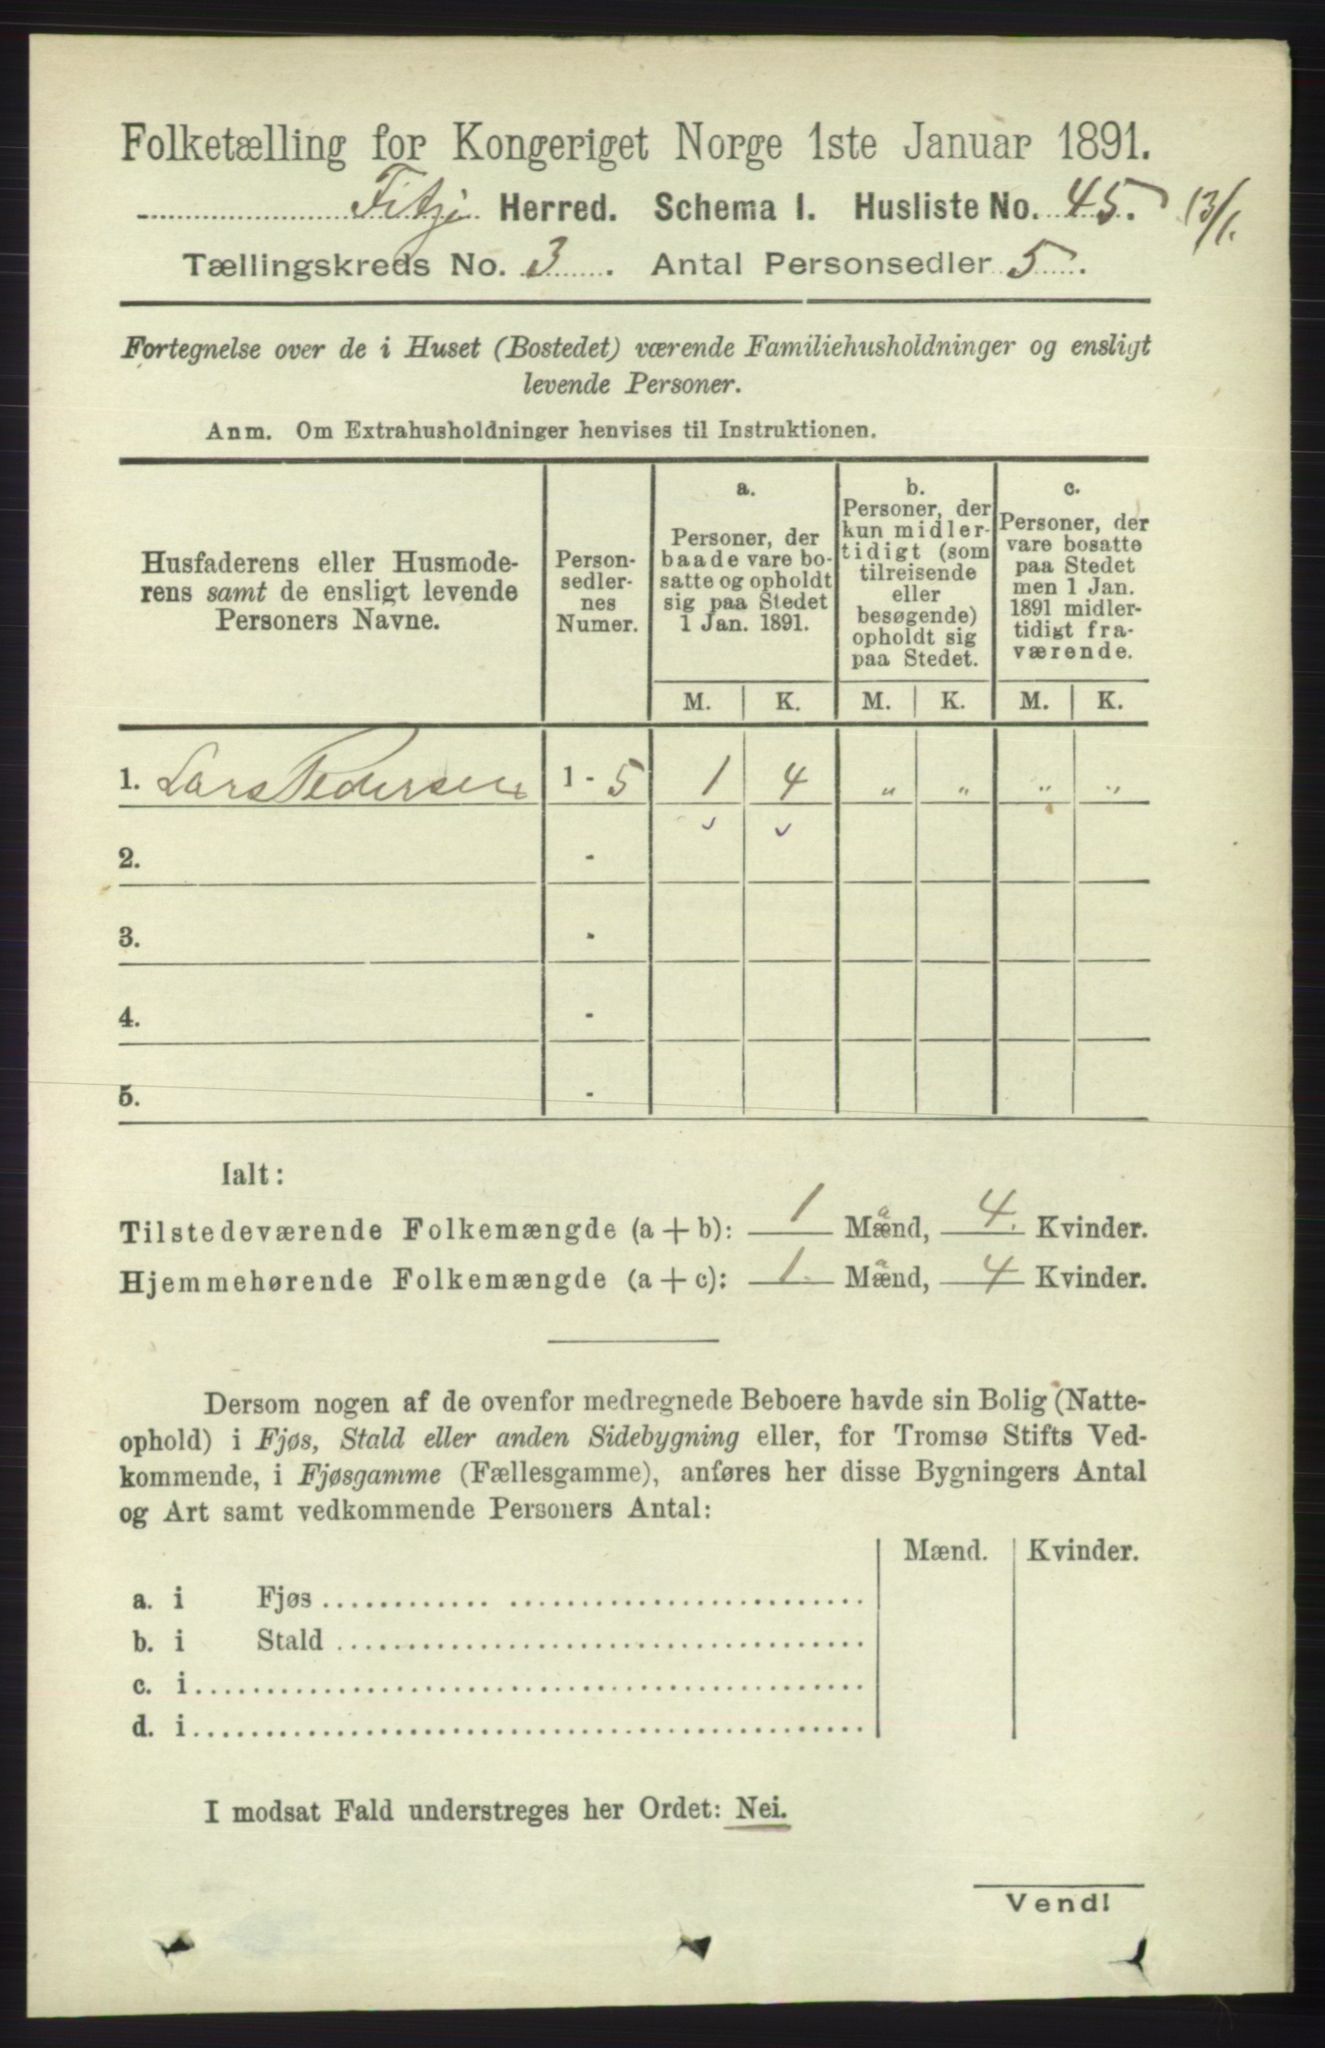 Folketælling for Kongeriget Norge 1ste Januar 1891.
Fitje Herred. Schema I. Husliste No. 45. 13/1.
Tællingskreds No. 3. Antal Personsedler 5.
Fortegnelse over de i Huset (Bostedet) værende Familiehusholdninger og ensligt
levende Personer.
Anm. Om Extrahusholdninger henvises til Instruktionen.
Husfaderens eller Husmode-
rens samt de ensligt levende
Personers Navne.
Person-
sedler-
nes
Numer.
a.
Personer, der
baade vare bo-
satte og opholdt
sig paa Stedet
1 Jan. 1891.
b.
Personer, der
kun midler-
tidigt (som
tilreisende
eller
besøgende)
opholdt sig
paa Stedet.
c.
Personer, der
vare bosatte
paa Stedet
men 1 Jan.
1891 midler-
tidigt fra-
værende.
M. K. M. K. M. K.
1. Lars Pedersen 1 - 5 1 4 " " " "
2. -
3. -
4. -
5. -
Ialt:
Tilstedeværende Folkemængde (a + b): 1 Mænd, 4. Kvinder.
Hjemmehørende Folkemængde (a + c): 1. Mænd, 4 Kvinder.
Dersom nogen af de ovenfor medregnede Beboere havde sin Bolig (Natte-
ophold) i Fjøs, Stald eller anden Sidebygning eller, for Tromsø Stifts Ved-
kommende, i Fjøsgamme (Fællesgamme), anføres her disse Bygningers Antal
og Art samt vedkommende Personers Antal:
Mænd. Kvinder.
a. i Fjøs
b. i Stald
c. i
d. i
I modsat Fald understreges her Ordet: Nei.
Vend!